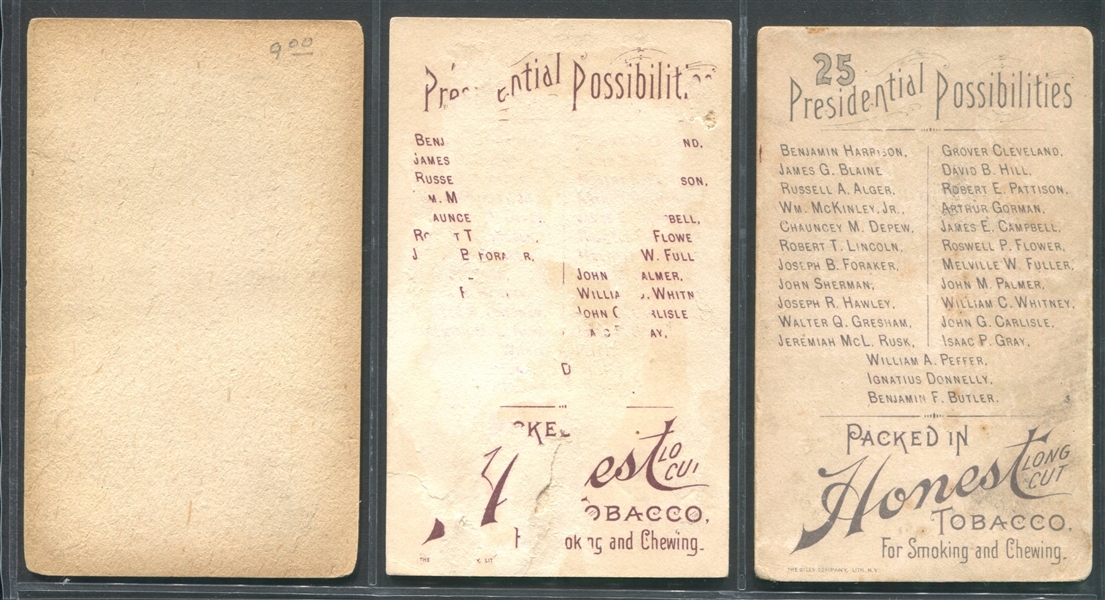 9 00
Possibiliti
BENJ ND,
JAMES
RUSSE SON,
M. M
AUNCE BELL,
RO T T FLOWE
J B. FORA R, W. FULL
JOHN ALMER,
F WILLIA . WHITN
JOHN G RLISLE
AY,
D
CKE
est LO
CU
OBACCO,
ok ng and Chewing.
THE Y, LIT
25
Presidential Possibilities
BENJAMIN HARRISON, GROVER CLEVELAND,
JAMES G. BLAINE DAVID B. HILL,
RUSSELL A. ALGER, ROBERT E. PATTISON,
WM. MCKINLEY, JR., ARTHUR GORMAN,
CHAUNCEY M. DEPEW, JAMES E. CAMPBELL,
ROBERT T. LINCOLN, ROSWELL P. FLOWER,
JOSEPH B. FORAKER, MELVILLE W. FULLER,
JOHN SHERMAN, JOHN M. PALMER,
JOSEPH R. HAWLEY, WILLIAM C. WHITNEY,
WALTER Q. GRESHAM, JOHN G. CARLISLE,
JEREMIAH MCL. RUSK, ISAAC P. GRAY,
WILLIAM A. PEFFER,
IGNATIUS DONNELLY,
BENJAMIN F. BUTLER.
PACKED IN
Honest LONG
CUT
TOBACCO,
For Smoking and Chewing.
COMPANY, LITH. N.Y.